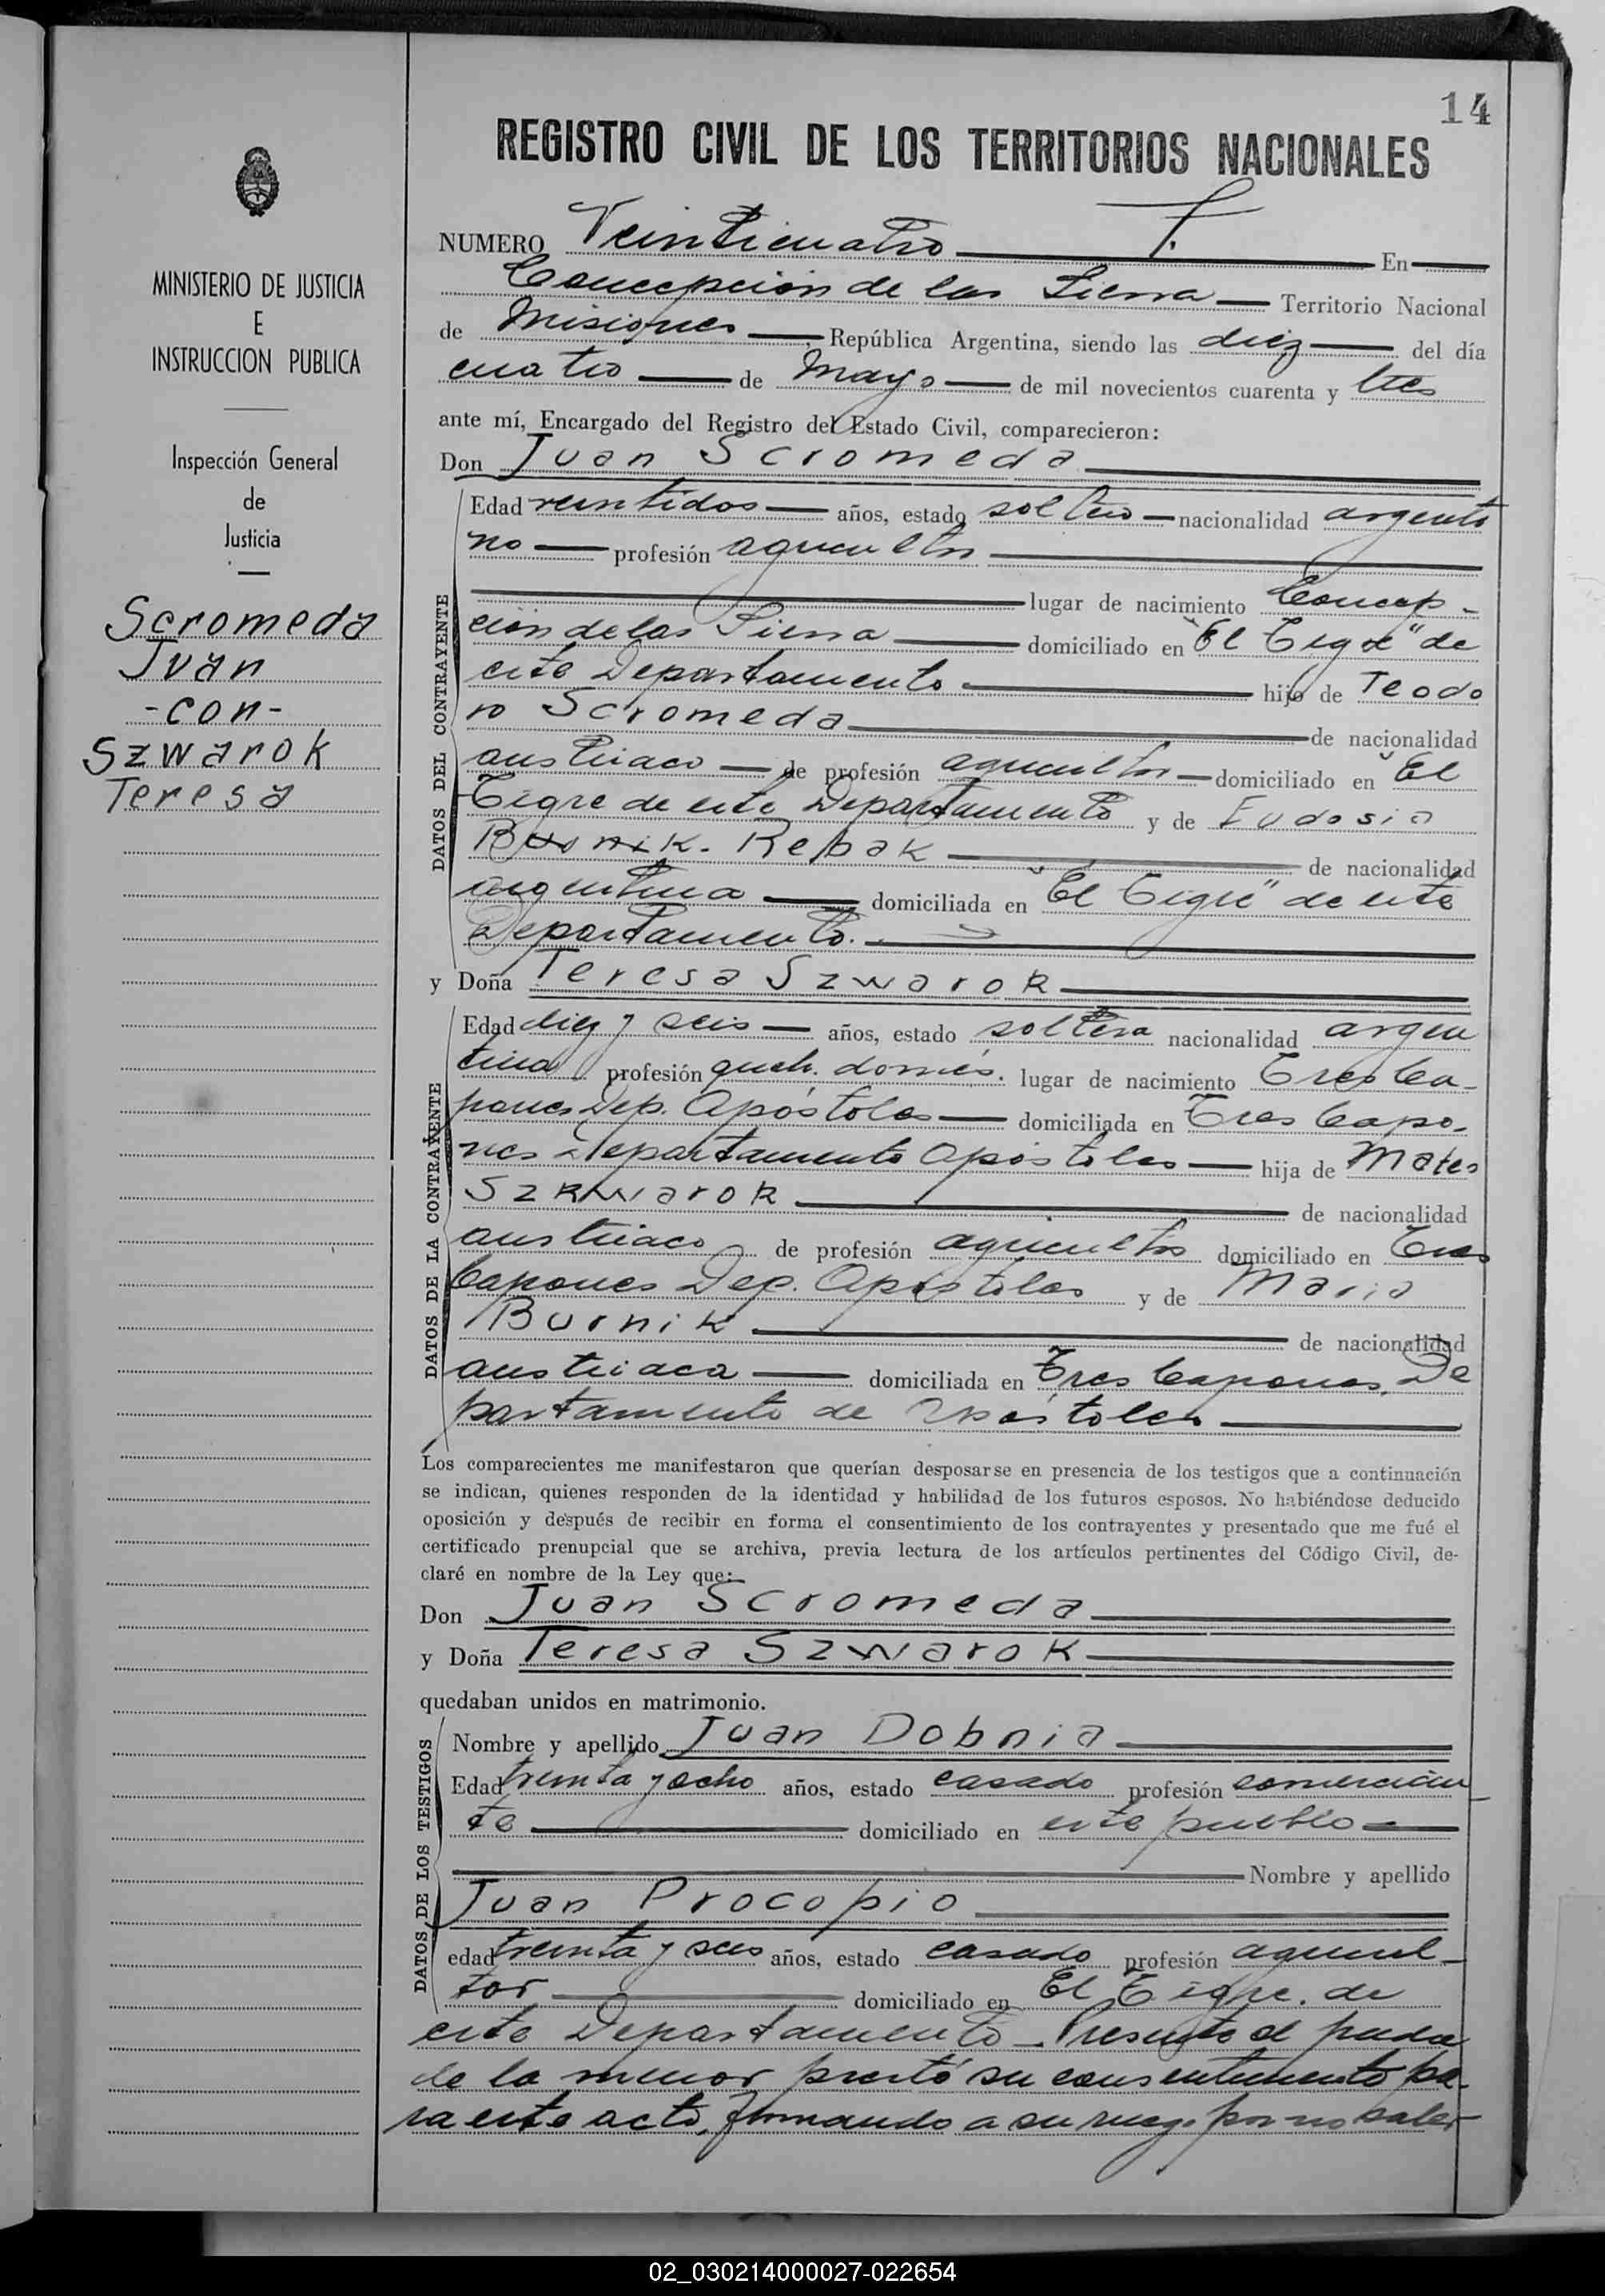 14
REGISTRO CIVIL DE LOS TERRITORIOS NACIONALES
MINISTERIO DE JUSTICIA
E
INSTRUCCION PUBLICA
Inspección General
de
Justicia
Scromeda
Juan
-con-
Szwarok
Teresa
NUMERO Veinticuatro En
Concepción de las Sierra Territorio Nacional
de Misiones, República Argentina, siendo las diez del día
cuatro de Mayo de mil novecientos cuarenta y tres
ante mí, Encargado del Registro del Estado Civil, comparecieron:
Don Juan Scromeda
DATOS DEL CONTRAYENTE
Edad veintidos años, estado soltero nacionalidad argenti
no profesión agricultor
lugar de nacimiento Concep-
ción de las Sierra domiciliado en "El Tigre" de
este Departamento hijo de Teodo
ro Scromeda de nacionalidad
austriaco de profesión agricultor domiciliado en "El
Tigre de este Departamento y de Eudosia
Rebak de nacionalidad
argentina domiciliada en "El Tigre" de este
Departamento.
y Doña Teresa Szwarok
DATOS DE LA CONTRAYENTE
Edad diez y seis años, estado soltera nacionalidad argen
tina profesión queh. domés. lugar de nacimiento Tres Ca-
pones Dep. Apóstoles domiciliada en Tres Capo-
nes Departamento Apóstoles hija de Mateo
de nacionalidad
austriaco de profesión agricultor domiciliado en Tres
Capones Dep. Apóstoles y de Maria
Burnik de nacionalidad
austriaca domiciliada en Tres Capones, De
partamento de Apóstoles
Los comparecientes me manifestaron que querían desposarse en presencia de los testigos que a continuación
se indican, quienes responden de la identidad y habilidad de los futuros esposos. No habiéndose deducido
oposición y después de recibir en forma el consentimiento de los contrayentes y presentado que me fué el
certificado prenupcial que se archiva, previa lectura de los artículos pertinentes del Código Civil, de-
claré en nombre de la Ley que:
Don Juan Scromeda
y Doña Teresa Szwarok
quedaban unidos en matrimonio.
DATOS DE LOS TESTIGOS
Nombre y apellido Juan Dobnia
Edad treinta y ocho años, estado casado profesión comercian
te domiciliado en este pueblo
Nombre y apellido
Juan Procopio
edad treinta y seis años, estado casado profesión agricul-
tor domiciliado en El Tigre. de
este Departamento - Presente el padre
de la menor prestó su consentimiento pa-
ra este acto, firmando a su ruego por no saber
02_030214000027-022654